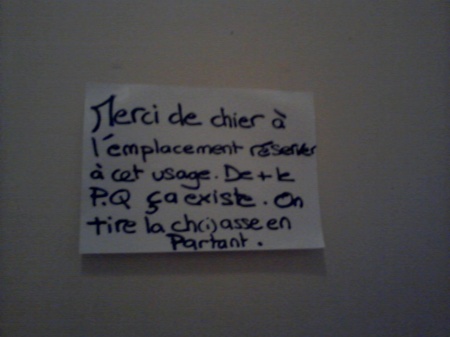 Merci de chier à
l'emplacement réserver
à cet usage. De + le
P.Q ça existe. On
tire la ch(i)asse en
Partant.